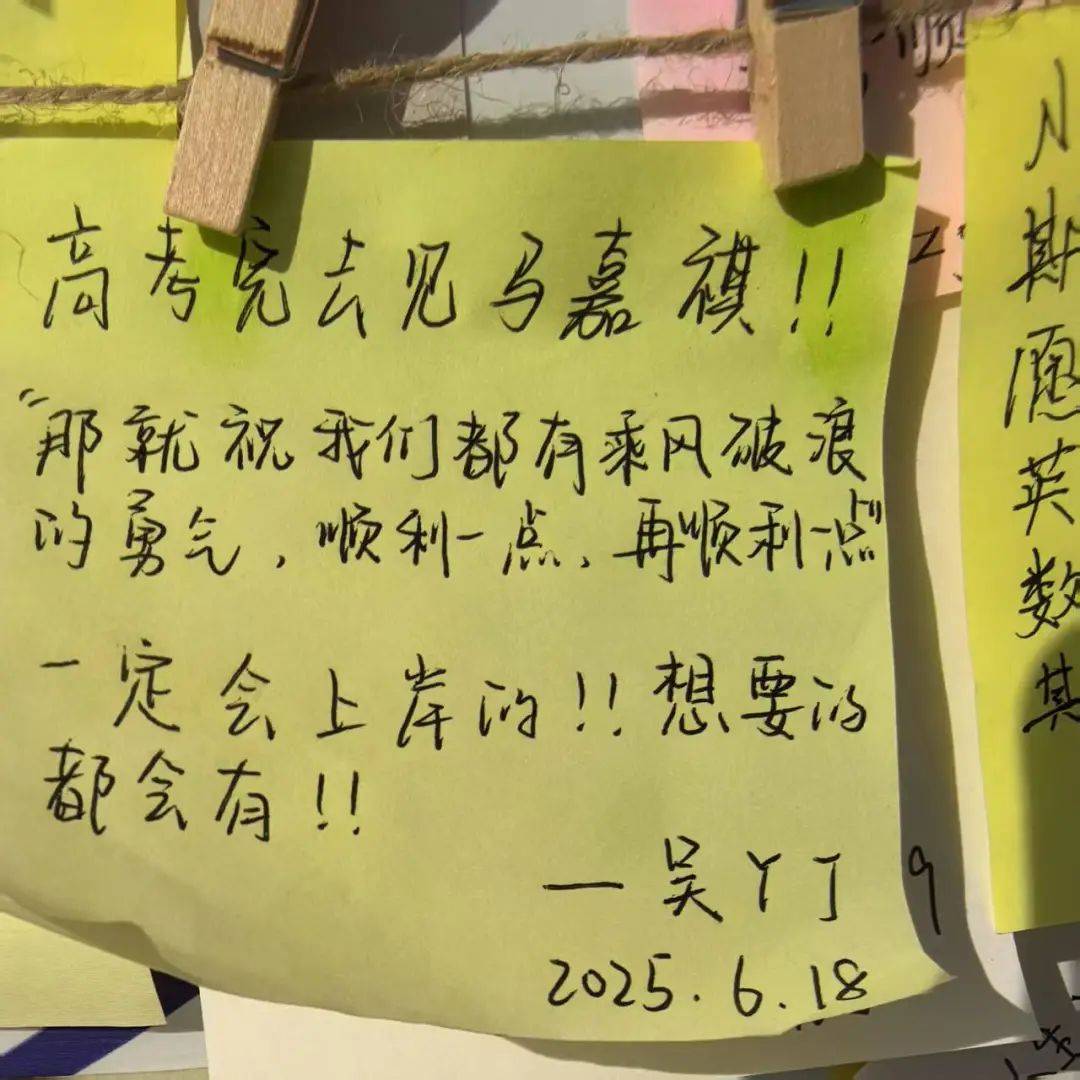 高考完去见马嘉祺!!
“那就祝我们都有乘风破浪
的勇气,顺利一点,再顺利一点”
一定会上岸的!!想要的
都会有!!
—吴丫丁
2025.6.18
斯
愿
英
数
其